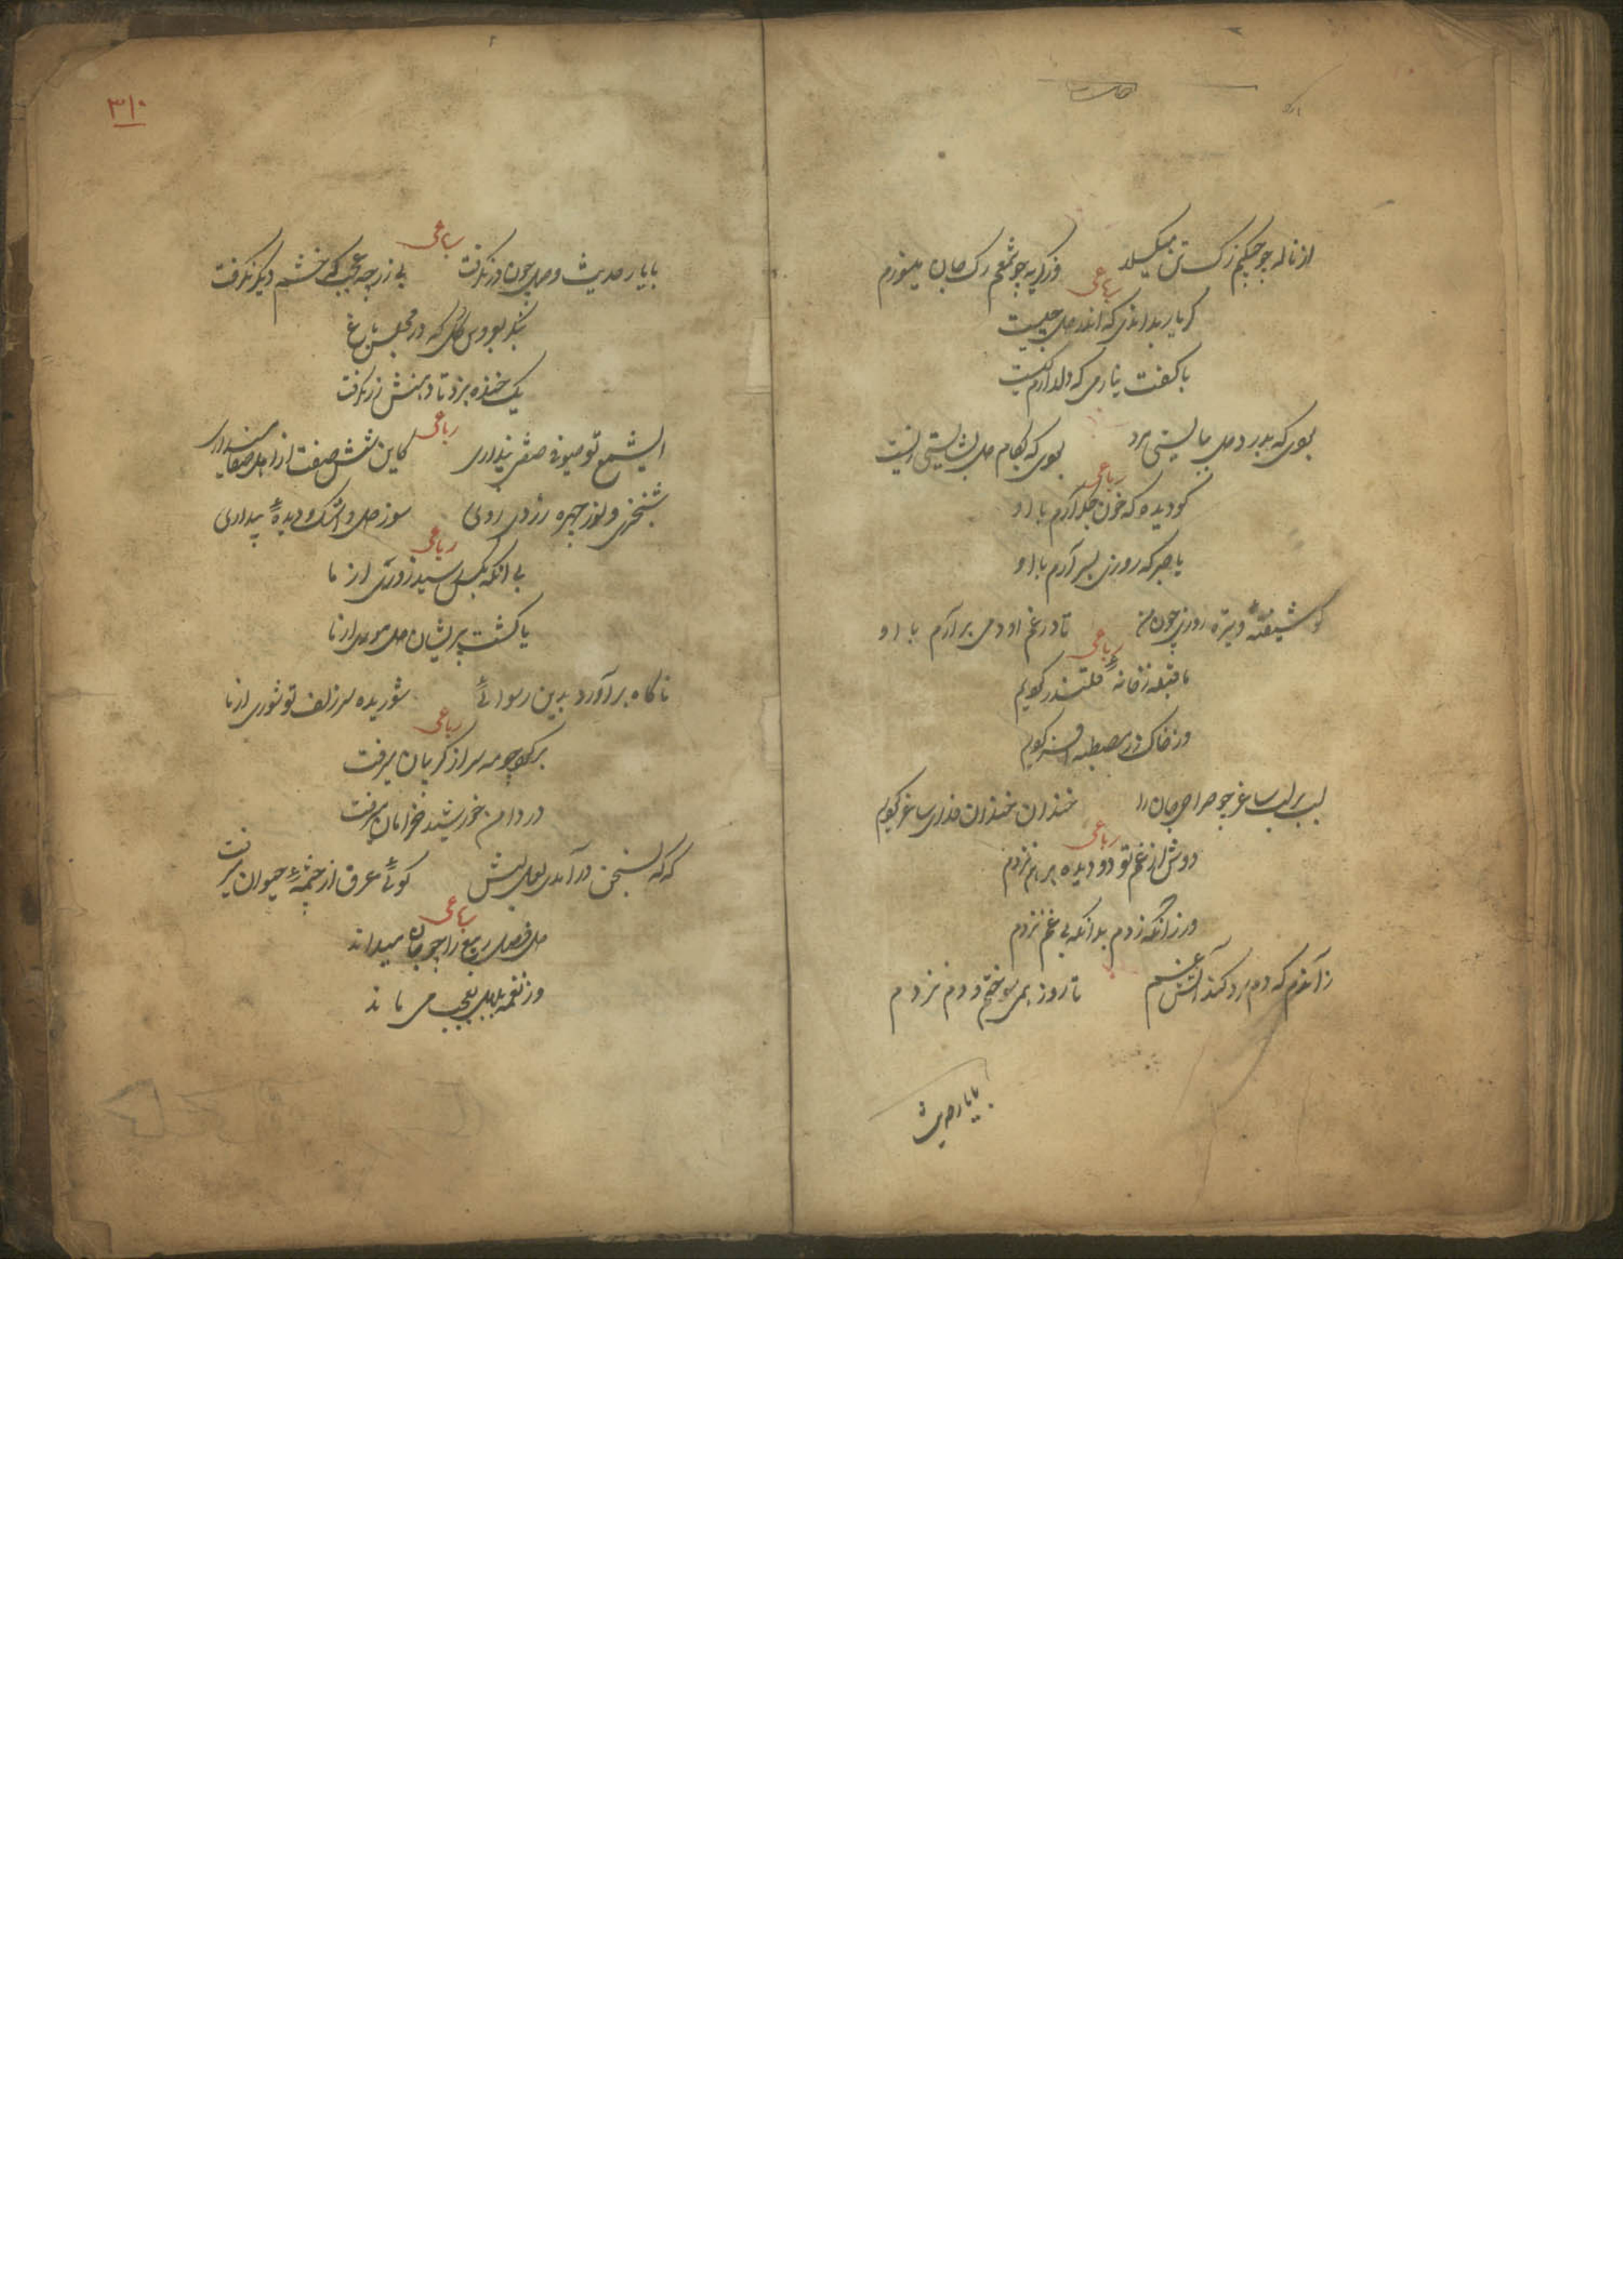 از ناله چو چنگم رگ تن میگسلد وز گریه چو شمعم رگ جان میسوزم
رباعی
کر یار بداندی که اندر دل چیست
با کفت نیارمی که دلدارم کیست
بوی که بدرد دل ببایستی مرد بوی که بکام دل بشایستی زیست
رباعی
کو دیده که خون جکر آرم با او
یا صبر که روزی بسر آرم با او
کو شیفتهٔ و تیره روزی چون من تا در غم او دمی برآرم با او
رباعی
ما قبله ز خانهٔ قلندر کویم
وز خاک در مصطبه افسر کویم
لب بر لب ساغر چو صراحی جان را خندان خندان فدای ساغر کویم
رباعی
دوش از غم تو دو دیده بر هم نزدم
ور زانکه زدم بدانکه بی غم نزدم
زآندم که دم سرد کند آتش غم تا روز همی سوختم و دم نزدم
با یار حدیث
۳۱۰
رباعی
با یار حدیث وصل چون در نکرفت بی زر چه عجب کی خشم دیکر نکرفت
بنکر بعروس کل که در مجلس باغ
یک خنده نزد تا دهنش زر نکرفت
رباعی
ای شمع تو صوفی صفتی پنداری کاین شش صفت از اهل صفا میداری
شبخیزی و نور چهره و زردی روی سوز دل و اشک و دیدهٔ بیداری
رباعی
بی آنکه بکس رسید زوری از ما
یا کشت پریشان دل موری از ما
ناکاه برآورد بدین رسوائی شوریده سر زلف تو شوری از ما
رباعی
برکو چو مه سر از کریبان برفت
در دامن خورشید خرامان برفت
که که بسخن درآمدی لعل لبش کوئی عرق از چشمهٔ حیوان برفت
رباعی
دل فصل ربیع را چو جان میداند
وز نغمه بلبل بعجب می ماند